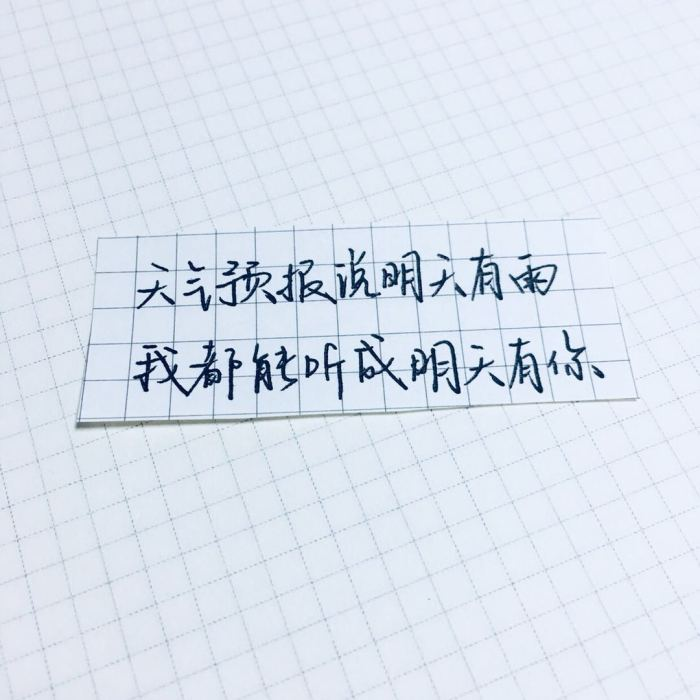 天气预报说明天有雨
我都能听成明天有你、